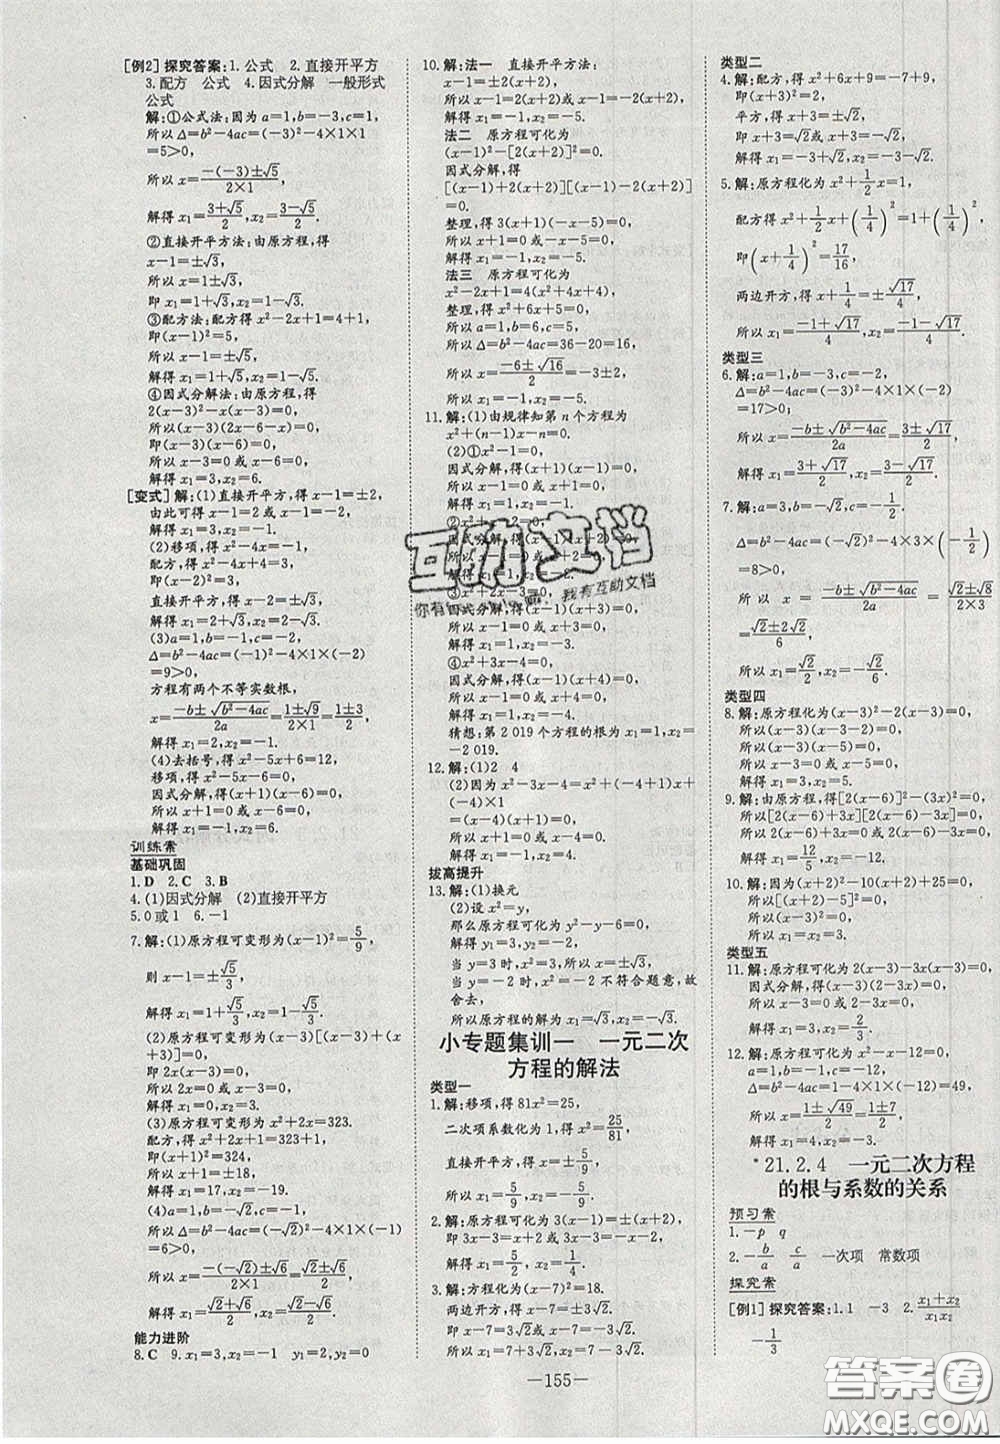 [例2] 探究答案:1. 公式 2. 直接开平方
3. 配方 公式 4. 因式分解 一般形式
公式
解:①公式法:因为a=1,b=-3,c=1,
所以Δ=b²-4ac=(-3)²-4×1×1
=5>0,
所以x=\frac{-(-3)±√5}{2×1},
解得x₁=\frac{3+√5}{2},x₂=\frac{3-√5}{2}.
②直接开平方法:由原方程,得
所以x-1=±√3,
即x₁=1+√3,x₂=1-√3.
③配方法:配方得x²-2x+1=4+1,
即(x-1)²=5.
所以x-1=±√5,
解得x₁=1+√5,x₂=1-√5.
④因式分解法:由原方程,得
2(x-3)²-x(x-3)=0,
所以(x-3)(2x-6-x)=0,
即(x-3)(x-6)=0,
所以x-3=0或x-6=0,
解得x₁=3,x₂=6.
[变式] 解:(1)直接开平方,得x-1=±2,
由此可得x-1=2或x-1=-2,
解得x₁=3,x₂=-1.
(2)移项,得x²-4x=-1,
配方,得x²-4x+4=-1+4,
即(x-2)²=3.
直接开平方,得x-2=±√3,
解得x₁=2+√3,x₂=2-√3.
(3)a=1,b=-1,c=-2,
Δ=b²-4ac=(-1)²-4×1×(-2)
=9>0,
方程有两个不等实数根,
x=\frac{-b±√b²-4ac}{2a}=\frac{1±√9}{2×1}=\frac{1±3}{2}
解得x₁=2,x₂=-1.
(4)去括号,得x²-5x+6=12,
移项,得x²-5x-6=0,
因式分解,得(x+1)(x-6)=0,
即x+1=0或x-6=0,
解得x₁=-1,x₂=6.
训练案
基础巩固
1. D 2. C 3. B
4. (1)因式分解 (2)直接开平方
5. 0或1 6. -1
7. 解:(1)原方程可变形为(x-1)²=\frac{5}{9},
则x-1=±\frac{√5}{3},
所以x₁=1+\frac{√5}{3},x₂=1-\frac{√5}{3}.
(2)原方程可变形为(x-3)[(x-3)+
(x+3)]=0,
所以2x(x-3)=0,
解得x₁=0,x₂=3.
(3)原方程可变形为x²+2x=323.
配方,得x²+2x+1=323+1,
即(x+1)²=324.
所以x+1=±18,
解得x₁=17,x₂=-19.
(4)a=1,b=-√2,c=-1,
所以Δ=b²-4ac=(-√2)²-4×1×(-1)=
6>0,
所以x=\frac{-(-√2)±√6}{2×1}=\frac{√2±√6}{2},
解得x₁=\frac{√2+√6}{2},x₂=\frac{√2-√6}{2}.
能力进阶
8. C 9. x₁=3,x₂=-1 y₁=2,y₂=0
10. 解:法一 直接开平方法:
x-1=±2(x+2),
所以x-1=2x+4或x-1=-2x-4,
解得x₁=-1,x₂=-5.
法二 原方程可化为
(x-1)²-[2(x+2)]²=0.
因式分解,得
[(x-1)+2(x+2)][(x-1)-2(x+2)]
=0.
整理,得3(x+1)(-x-5)=0,
所以x+1=0或-x-5=0,
解得x₁=-1,x₂=-5.
法三 原方程可化为
x²-2x+1=4x²+16x+16,
整理,得x²+6x+5=0,
所以a=1,b=6,c=5,
Δ=b²-4ac=36-20=16,
所以x=\frac{-6±√16}{2}=-3±2,
解得x₁=-1,x₂=-5.
11. 解:(1)由规律知第n个方程为
x²+(n-1)x-n=0.
(2)①x²-1=0,
因式分解,得(x+1)(x-1)=0,
所以x+1=0或x-1=0,
解得x₁=1,x₂=-1.
因式分解,得(x-1)(x+3)=0,
解得x₁=1,x₂=-3.
④x²+3x-4=0,
因式分解,得(x-1)(x+4)=0,
所以x-1=0或x+4=0,
解得x₁=1,x₂=-4.
猜想:第2 019个方程的根为x₁=1,x₂=
-2 019.
12. 解:(1)2 4
(2)因为x²-3x-4=x²+(-4+1)x+
(-4)×1
=(x-4)(x+1)=0,
所以x-4=0或x+1=0,
解得x₁=4,x₂=-1.
拔高提升
13. 解:(1)换元
(2)设x²=y,
那么原方程可化为y²-y-6=0.
解得y₁=3,y₂=-2,
当y=3时,x²=3,所以x=±√3;
当y=-2时,x²=-2不符合题意,故
舍去,
所以原方程的解为x₁=√3,x₂=-√3.
小专题集训一 一元二次
方程的解法
类型一
1. 解:移项,得81x²=25,
二次项系数化为1,得x²=\frac{25}{81},
直接开平方,得x=±\frac{5}{9},
所以x₁=\frac{5}{9},x₂=-\frac{5}{9}.
2. 解:原方程可化为(3x+1)=±(x+3),
所以3x+1=x+3或3x+1=-x-3,
解得x₁=1,x₂=-1.
3. 解:方程化为(x-7)²=18.
两边开方,得x-7=±3√2,
即x-7=3√2或x-7=-3√2,
所以x₁=7+3√2,x₂=7-3√2.
类型二
4. 解:配方,得x²+6x+9=-7+9,
即(x+3)²=2.
开方,得x+3=±√2,
即x+3=√2或x+3=-√2,
解得x₁=-3+√2,x₂=-3-√2.
5. 解:原方程化为x²+\frac{1}{2}x=1,
配方得x²+\frac{1}{2}x+(\frac{1}{4})²=1+(\frac{1}{4})²,
即(x+\frac{1}{4})²=\frac{17}{16}
两边开方,得x+\frac{1}{4}=±\frac{√17}{4},
所以x₁=\frac{-1+√17}{4},x₂=\frac{-1-√17}{4}.
类型三
6. 解:a=1,b=-3,c=-2,
Δ=b²-4ac=(-3)²-4×1×(-2)
=17>0;
所以x=\frac{-b±√b²-4ac}{2a}=\frac{3±√17}{2},
解得x₁=\frac{3+√17}{2},x₂=\frac{3-√17}{2}.
7. 解:a=3,b=-√2,c=-\frac{1}{2},
Δ=b²-4ac=(-√2)²-4×3×(-\frac{1}{2})
=8>0,
所以x=\frac{-b±√b²-4ac}{2a}=\frac{√2±√8}{2×3}
=\frac{√2±2√2}{6},
所以x₁=\frac{√2}{2},x₂=-\frac{√2}{6}.
类型四
8. 解:原方程化为(x-3)²-2(x-3)=0,
所以(x-3)(x-3-2)=0,
所以(x-3)(x-5)=0,
所以x-3=0或x-5=0,
解得x₁=3,x₂=5.
9. 解:由原方程,得[2(x-6)]²-(3x)²=0.
所以[2(x-6)+3x][2(x-6)-3x]=0,
所以2(x-6)+3x=0或2(x-6)-3x=0,
解得x₁=\frac{12}{5},x₂=-12.
10. 解:因为(x+2)²-10(x+2)+25=0,
所以[(x+2)-5]²=0,
所以(x-3)²=0,
所以x₁=x₂=3.
类型五
11. 解:原方程可化为2(x-3)-3x(x-3)=0,
因式分解,得(x-3)(2-3x)=0,
所以x-3=0或2-3x=0,
所以x₁=3,x₂=\frac{2}{3}.
12. 解:原方程可化为x²-x-12=0,
a=1,b=-1,c=-12,
Δ=b²-4ac=1-4×1×(-12)=49,
所以x=\frac{1±√49}{2×1}=\frac{1±7}{2},
解得x₁=4,x₂=-3.
*21.2.4 一元二次方程
的根与系数的关系
预习案
1. -p q
2. -\frac{b}{a} \frac{c}{a} 一次项 常数项
探究案
[例1] 探究答案:1. 1 -3 2. \frac{x₁+x₂}{x₁x₂}
-\frac{1}{3}
—155—
互助文档
我有互助文档
答案圈
MXQE.COM